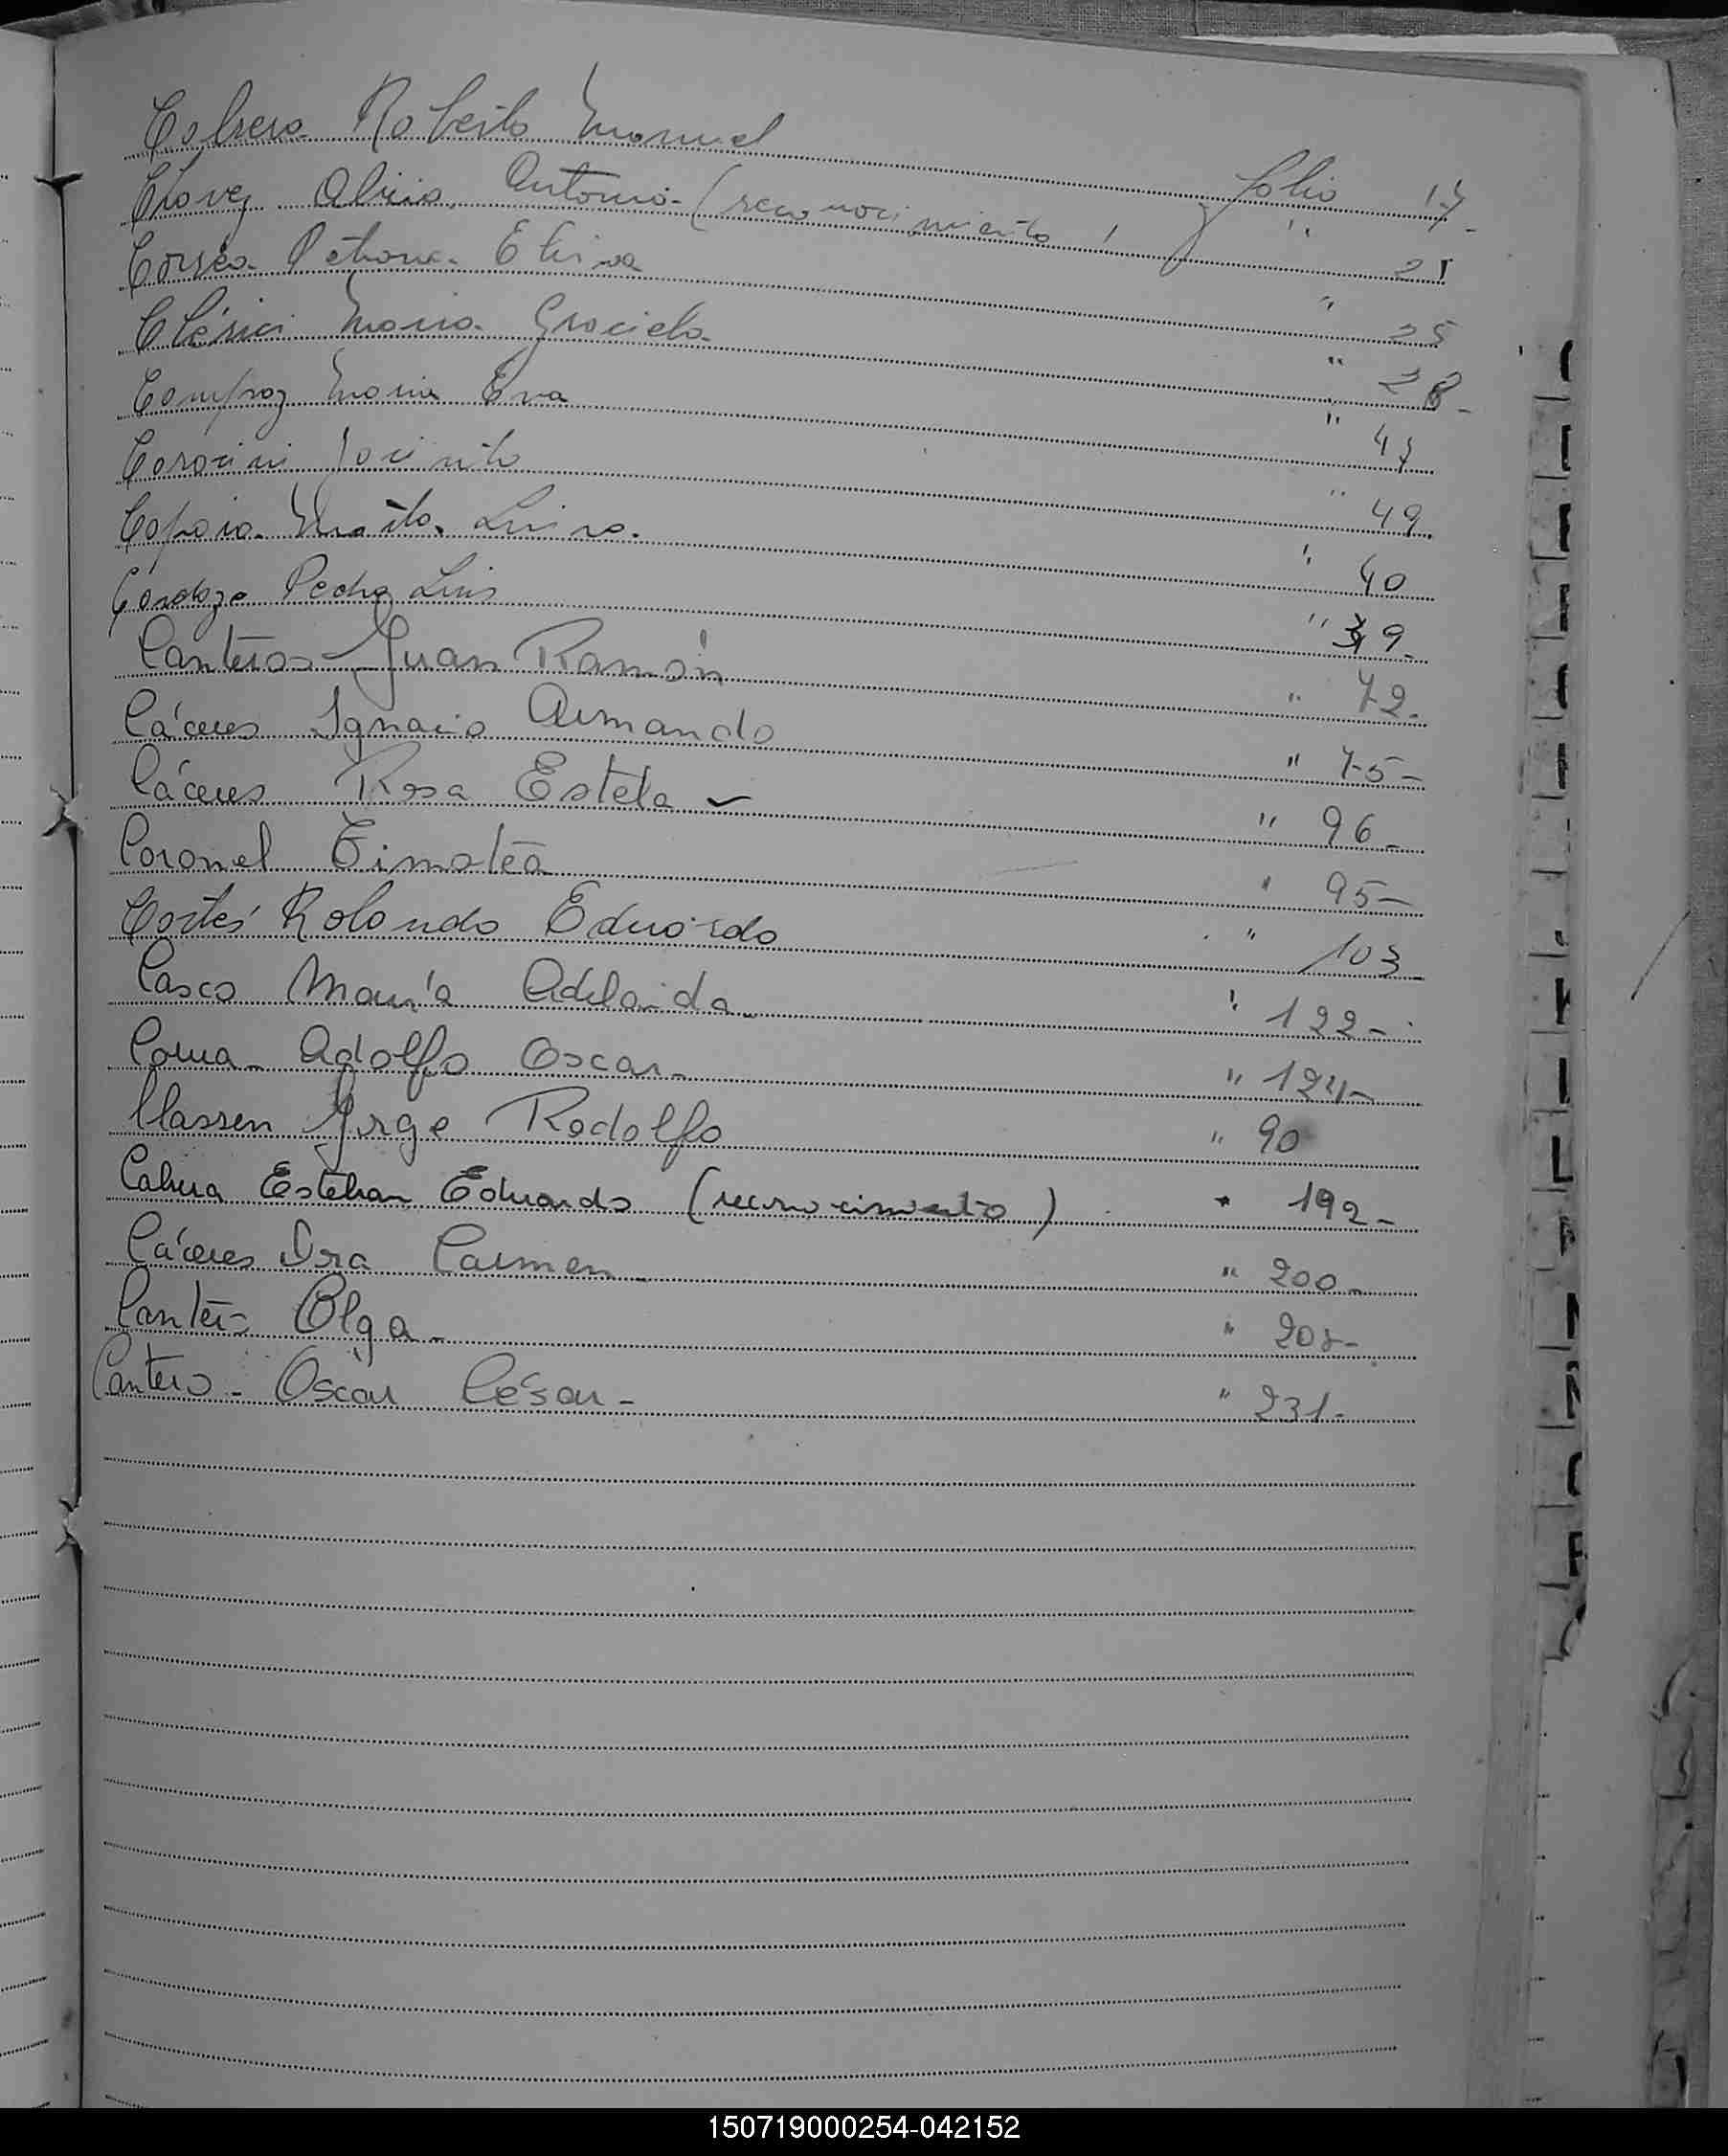 Cabrera Roberto Manuel folio 17-
Chavez Alicia Antonia - (reconocimiento) " 21
Correa Petrona Elisa " 25
Clérici Maria Graciela " 28-
Compraz Maria Eva " 47
Jacinto " 49
Luisa. " 40
Cardozo Pedro Luis " 39-
Canteros Juan Ramón " 72-
Cáceres Ignacio Armando " 75-
Cáceres Rosa Estela " 96-
Coronel Timotea " 95-
Cortés Rolando Eduardo " 103
Casco María Adelaida - " 122-
Adolfo Oscar - " 124-
Classen Jorge Rodolfo " 90
Cabrera Esteban Eduardo (reconocimiento) " 192-
Cáceres Carmen - " 200-
Olga - "
Cantero - Oscar César - " 231-
150719000254-042152